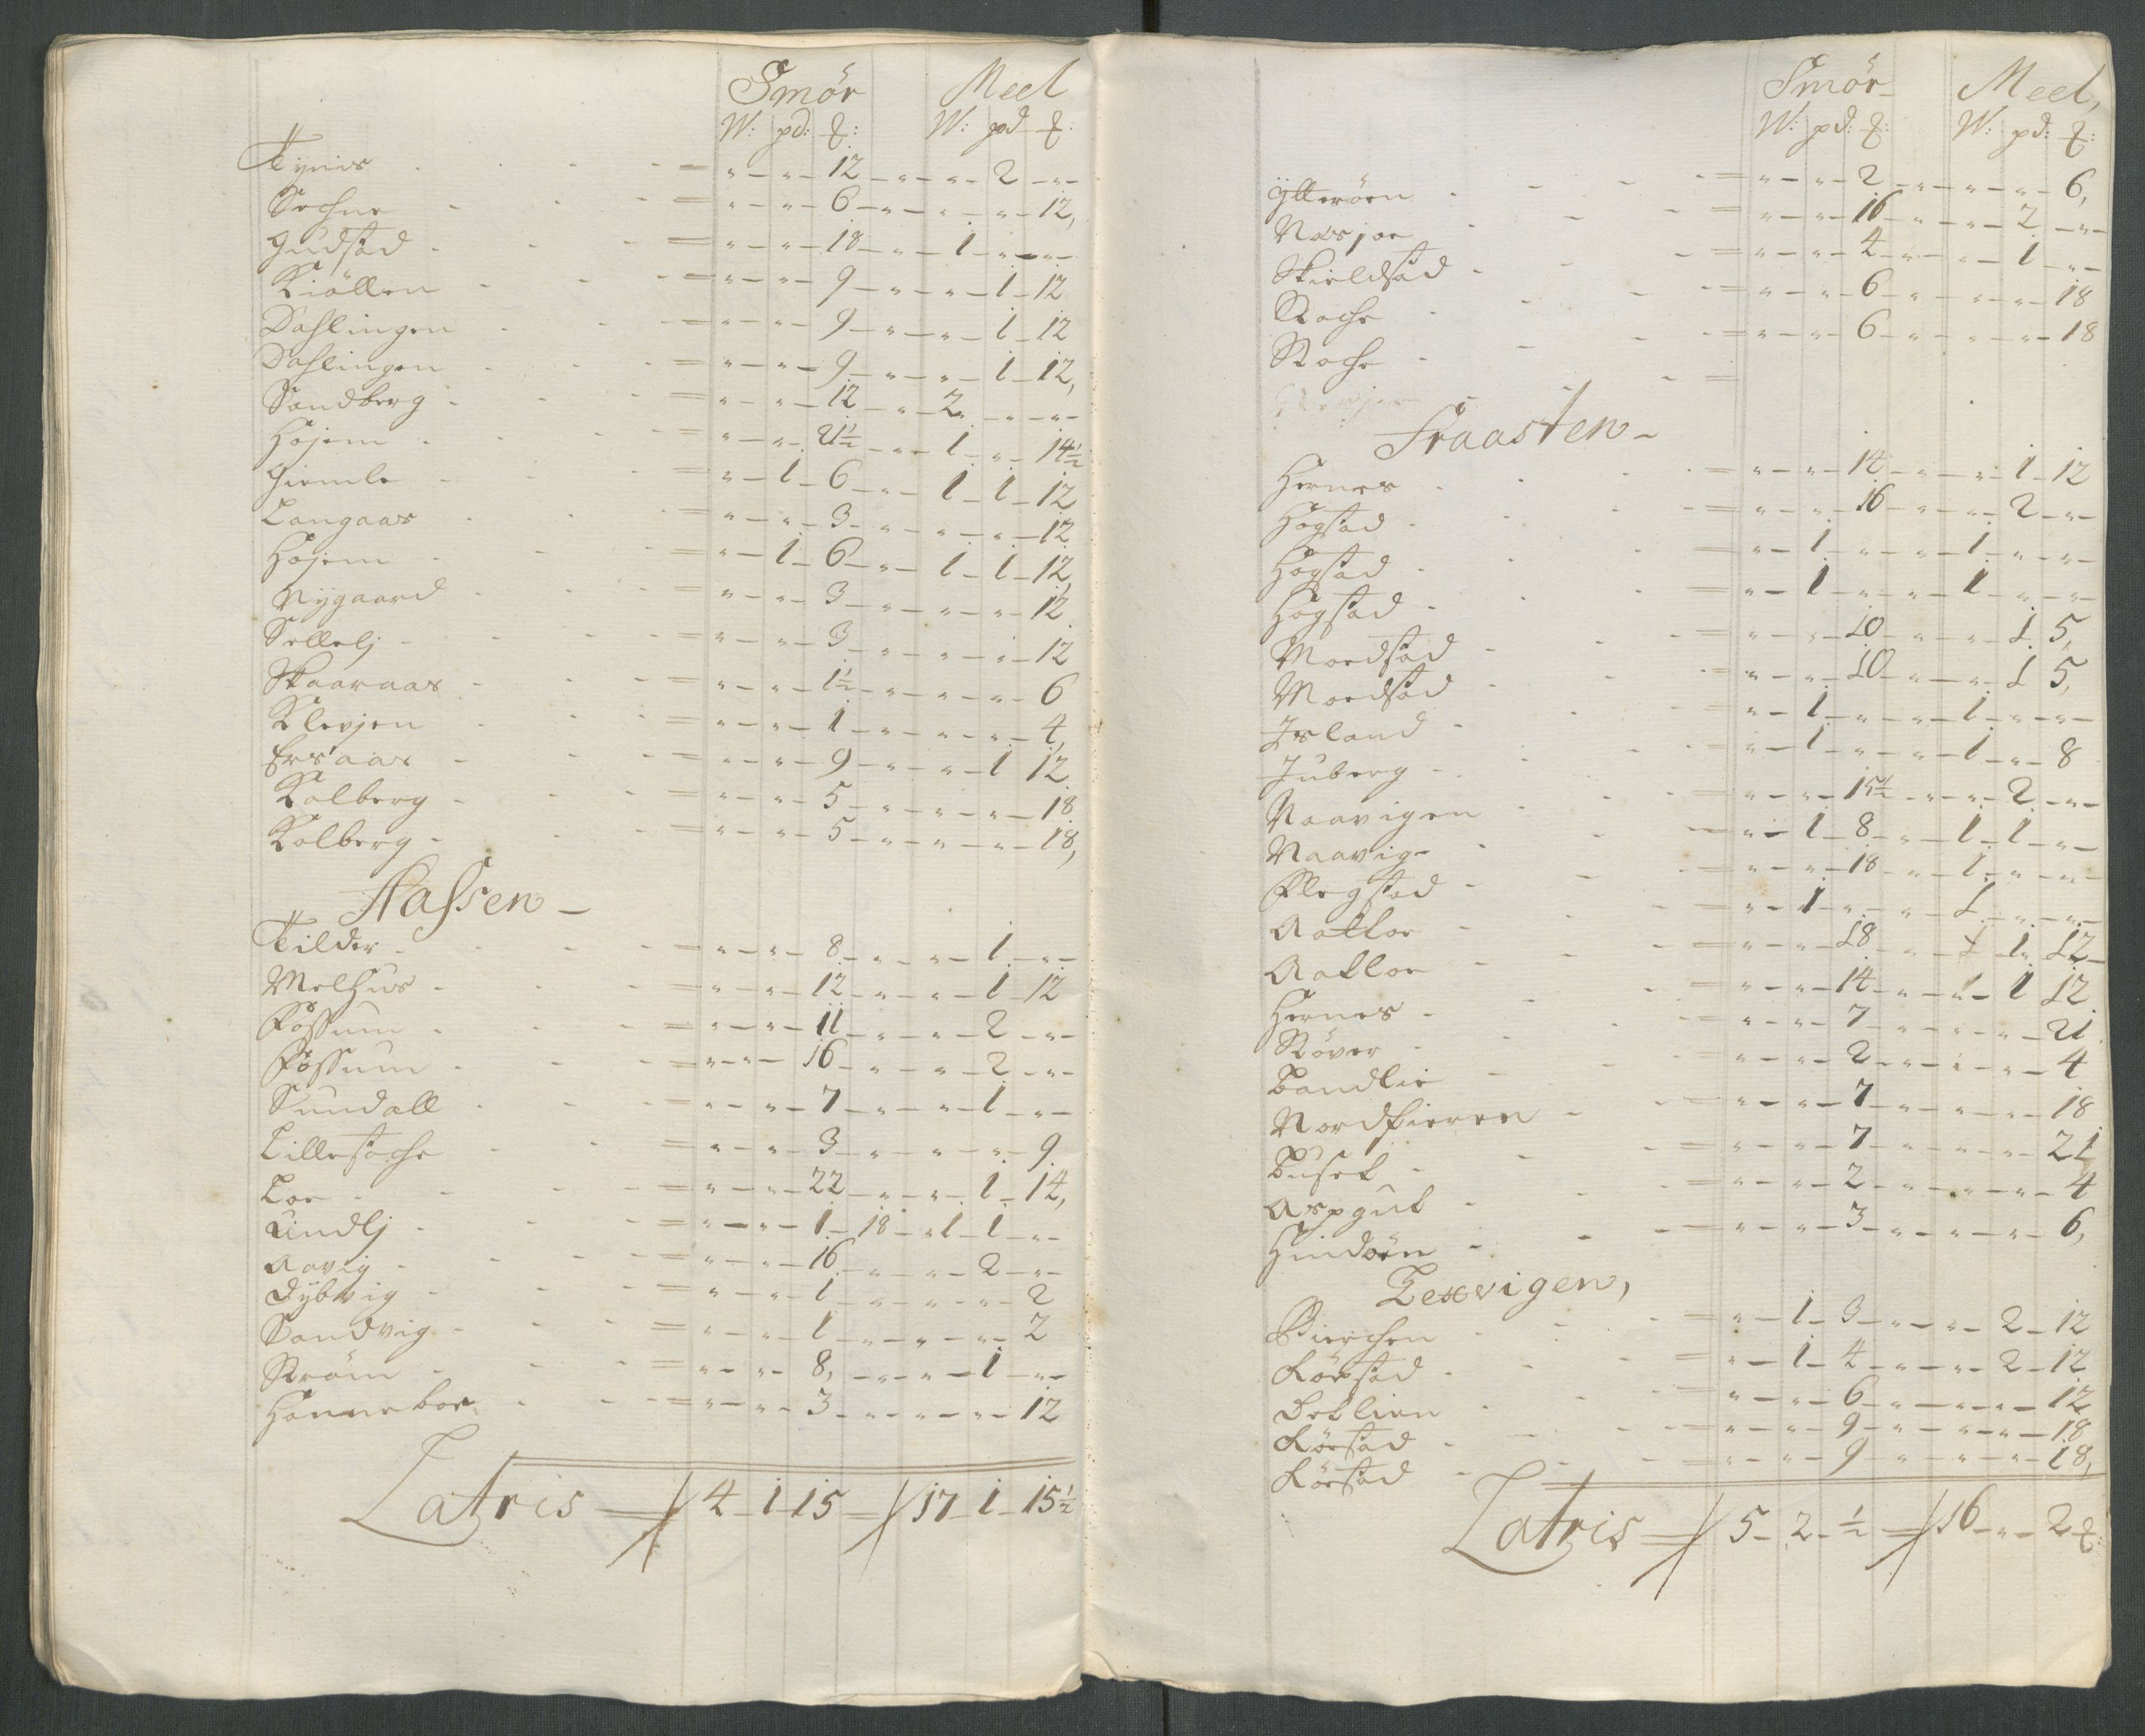 Smör Meel
W: pd: ₰: W: pd ₰:
Tynis = " – " – 12 – " – " – 2 – "
Sochne = " – " – 6 – " – " – " – 12,
Gudstad = " – " – 18 – " – 1 – " – "
Kiöllen = " – " – 9 – " – " – 1 – 12
Dahlingen = " – " – 9 – " – " – 1 – 12
Dahlingen = " – " – 9 – " – " – 1 – 12,
Sandberg = " – " – 12 – " – 2 – " – "
Hojem = " – " – 21½ – " – 1 – " – 14½
Giemle = " – 1 – 6 – " – 1 – 1 – 12
Langaas = " – " – 3 – " – " – " – 12
Hojem = " – 1 – 6 – " – 1 – 1 – 12,
Nygaard = " – " – 3 – " – " – " – 12
Sellelj = " – " – 3 – " – " – " – 12
Skaaraas = " – " – 1½ – " – " – " – 6
Klevjen = " – " – 1 – " – " – " – 4,
Ersaas = " – " – 9 – " – " – 1 12
Kolberg = " – " – 5 – " – " – " – 18
Kolberg = " – " – 5 – " – " – " – 18,
Aassen –
Tilder = " – " – 8 – " – " – 1 – "
Melhus = " – " – 12 – " – " – 1 – 12
Fossum = " – " – 11 – " – " – 2 – "
Fossum = " – " – 16 – " – " – 2 – "
Sundall = " – " – 7 – " – " – 1 – "
Lillestoche = " – " – 3 – " – " – " – 9
Loe = " – " – 22 – " – " – 1 – 14,
Lindlj = " – " – 1 – 18 – " 1 – 1 – "
Aavig = " – " – 16 – " – " – 2 – "
Dybvig = " – " – 1 – " – " – " – 2
Sandvig = " – " – 1 – " – " – " – 2
Strøm = " – " – 8, – " – " – 1 – "
Hanneboe = " – " – 3 – " – " – " – 12
Latris = 4 – 1 – 15 = 17 – 1 – 15½
Smör Meel,
W: pd: ₰: W: pd: ₰:
Ytterøen = " – " – 2 – " – " – " – 6,
Nosjoe = " – " – 16 – " – " – 2 – "
Skieldstad = " – " – 4 – " – " – 1 – "
Stoche = " – " – 6 – " – " – " – 18
Stoche = " – " – 6 – " – " – " – 18
Fraasten –
Hernes = " – " – 14 – " – " – 1 – 12
Hogstad = " – " – 16 – " – " – 2 – "
Hogstad = " – 1 – " – " – 1 – " – "
Hogstad = " – 1 – " – " – 1 – " – "
Moedstad = " – " – 10 – " – " – 1 5,
Moedstad = " – " – 10 – " – " – 1 5,
Island = " – 1 – " – " – 1 – " – "
Juberg = " – 1 – " – " – 1 – " – 8
Naavigen = " – " – 15½ – " – " – 2 – "
Naavig = " – 1 – 8 – " – 1 – 1 – "
Flegstad = " – " – 18 – " – 1 – " – "
Aakloe = " – 1 – " – " – 1 – " – "
Aakloe = " – " – 18 – " – 1 1 12
Hernes = " – " – 14 – " – 1 – 1 12
Støver = " – " – 7 – " – " – " – 21
Bandlie = " – " – 2 – " – " – " – 4
Nordfieren = " – " – 7 – " – " – " – 18
Buset = " – " – 7 – " – " – " – 21
Aspgut = " – " – 2 – " – " – " – 4
Hindøen = " – " – 3 – " – " – " – 6,
Lexvigen,
Bierchen = " – 1 – 3 – " – " – 2 – 12
Rörstad = " – 1 – 4 – " – " – 2 – 12
Deklien = " – " – 6 – " – " – " – 12
Rörstad = " – " – 9 – " – " – " – 18
Rörstad = " – " – 9 – " – " – " – 18,
Latris = 5 – 2 – ½ = 16 – " – 2 ₰: